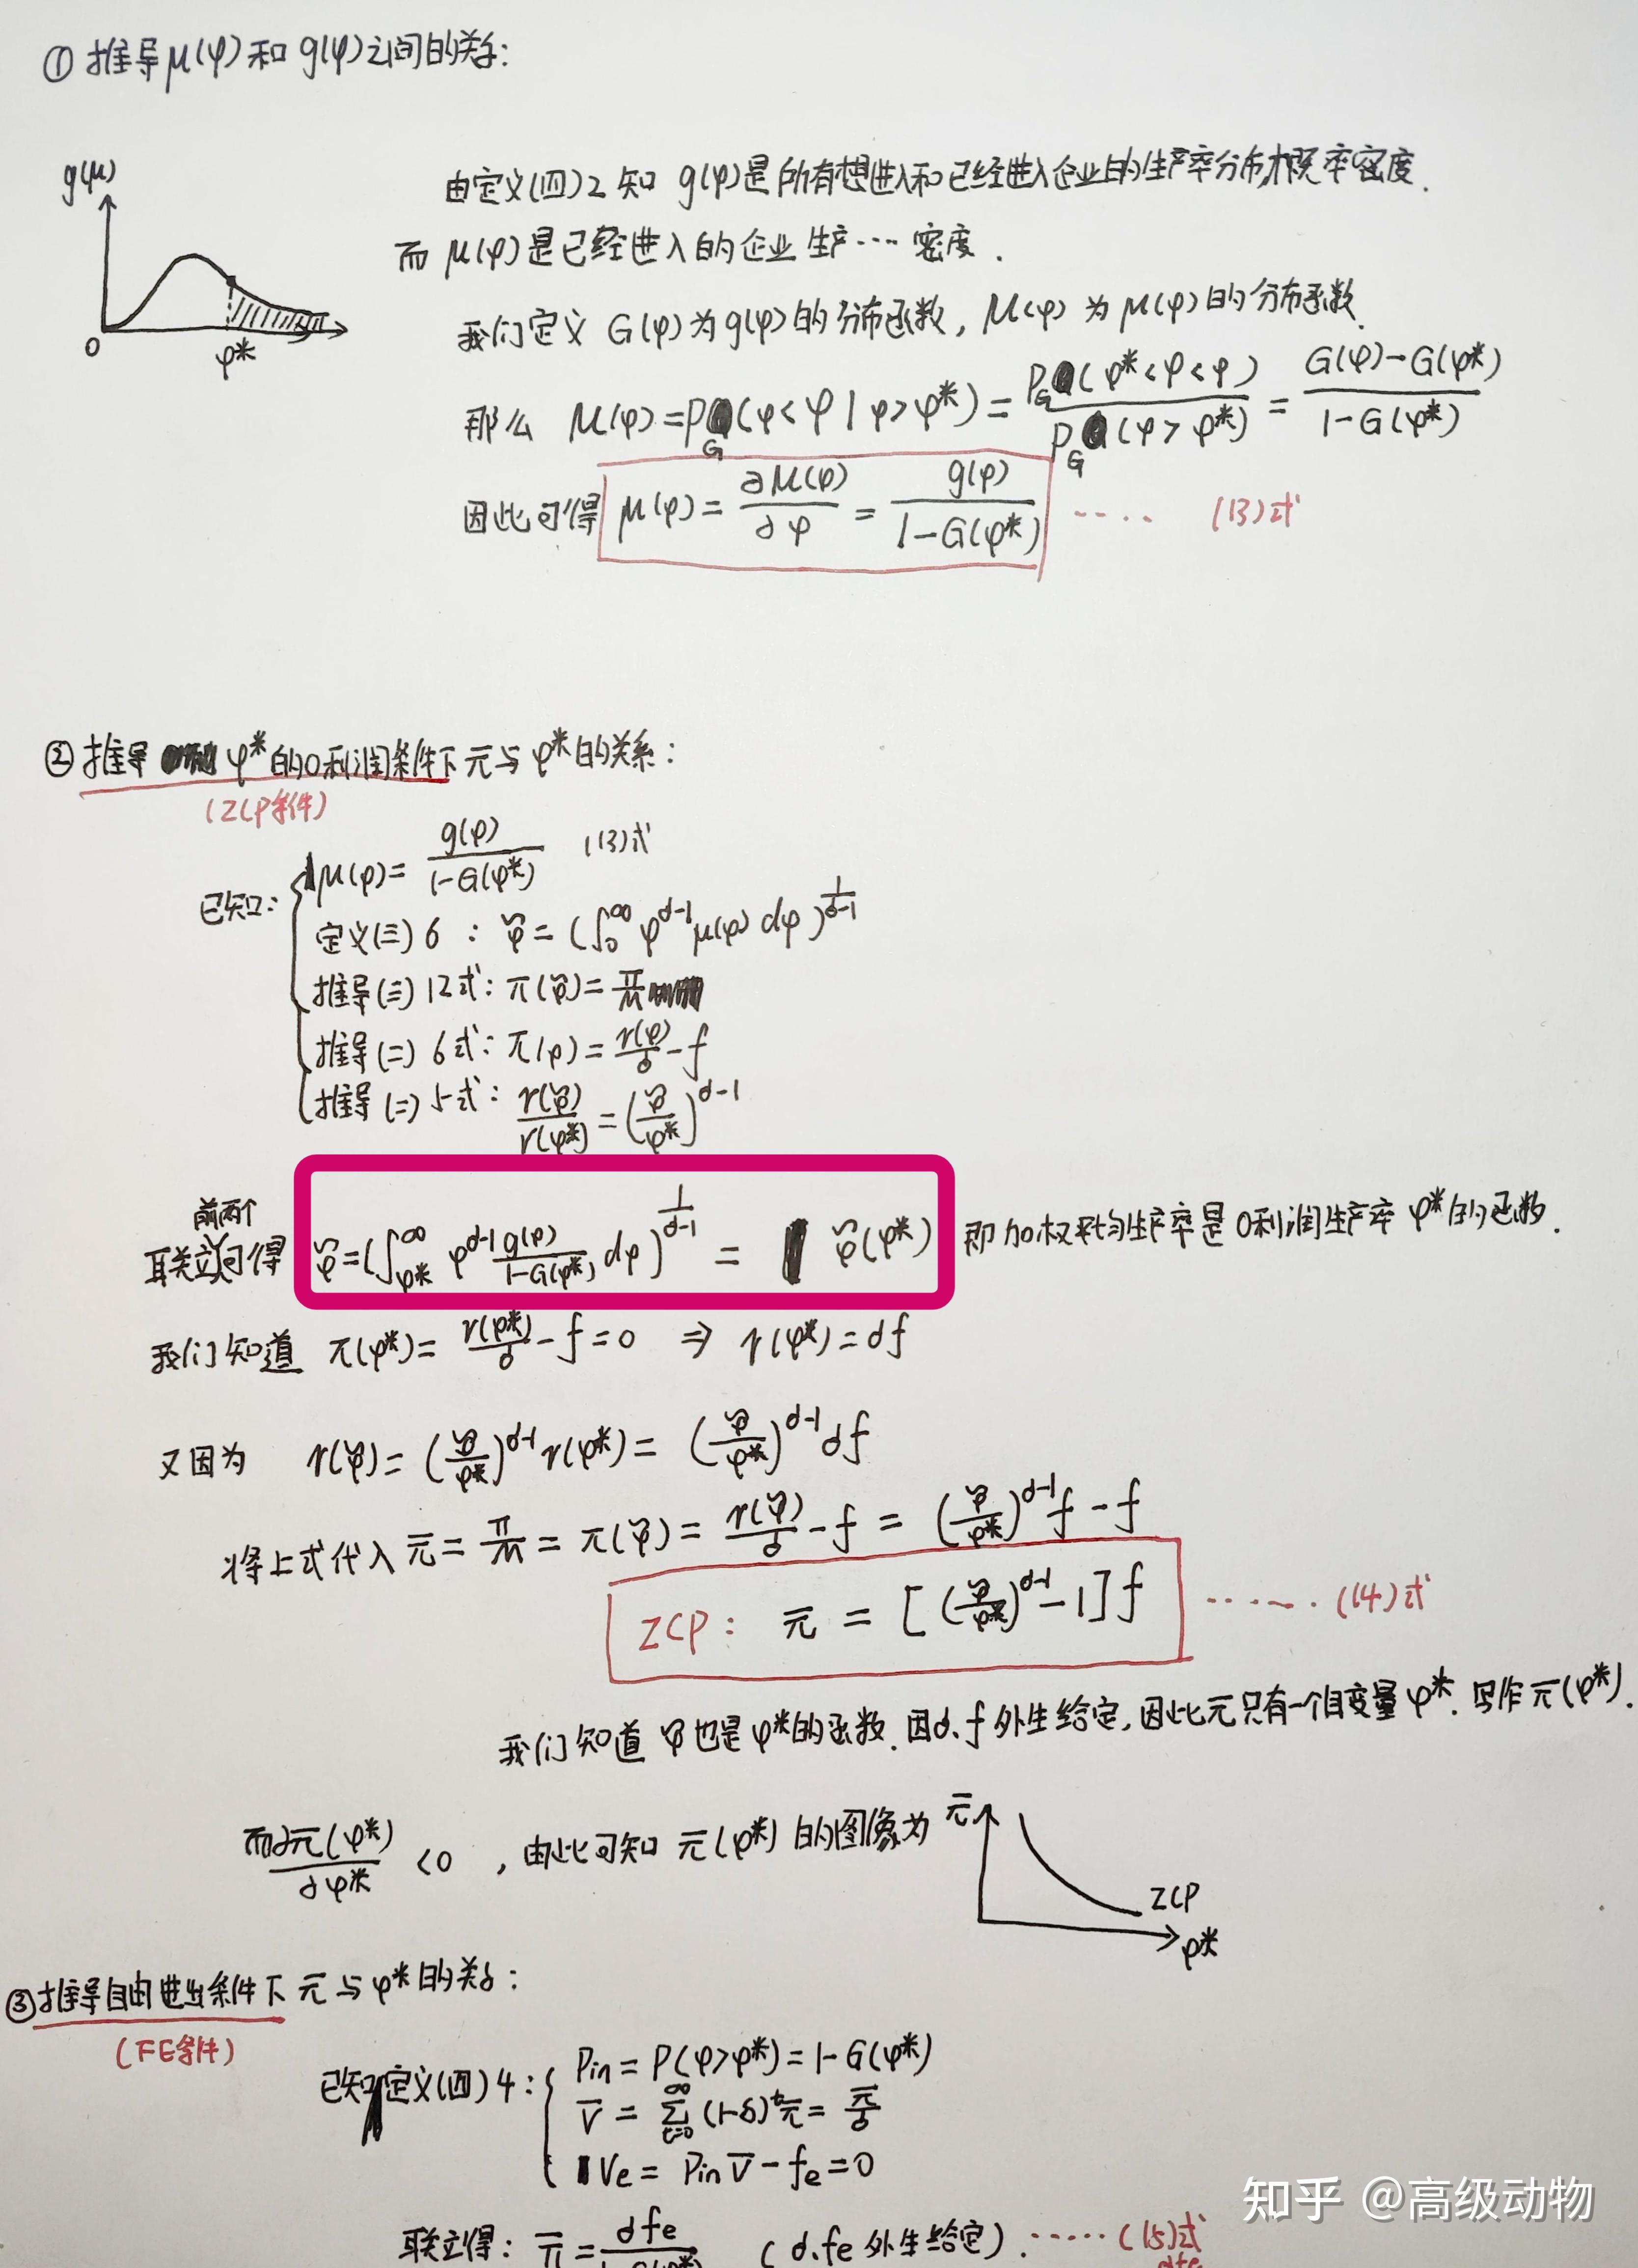 ① 推导μ(φ)和g(φ)之间的关系:
g(μ)
0
φ*
由定义(四)2知 g(φ)是所有想进入和已经进入企业的生产率分布概率密度.
而 μ(φ)是已经进入的企业生产····密度.
我们定义 G(φ)为g(φ)的分布函数, M(φ)为μ(φ)的分布函数.
那么 M(φ)=P_G(φ<φ|φ>φ*)= P_G(φ*<φ<φ)/P_G(φ>φ*) = (G(φ)-G(φ*))/(1-G(φ*))
因此可得 μ(φ)= ∂M(φ)/∂φ = g(φ)/(1-G(φ*)) ····· (13)式
② 推导 φ*的0利润条件下 π̄与φ*的关系:
(ZCP条件)
已知:
μ(φ)= g(φ)/(1-G(φ*)) (13)式
定义(三)6 : φ̃=(∫₀^∞ φ^(σ-1) μ(φ) dφ)^(1/(σ-1))
推导(三)12式: π(φ̃)=Π/M
推导(二)6式: π(φ)=r(φ)/σ-f
推导(二)5式: r(φ̃)/r(φ*)=(φ̃/φ*)^(σ-1)
前两个
联立可得 φ̃=(∫_φ*^∞ φ^(σ-1) g(φ)/(1-G(φ*)) dφ)^(1/(σ-1)) = φ̃(φ*) 即加权平均生产率是0利润生产率φ*的函数.
我们知道 π(φ*)= r(φ*)/σ-f=0 ⇒ r(φ*)=σf
又因为 r(φ̃)=(φ̃/φ*)^(σ-1) r(φ*)=(φ̃/φ*)^(σ-1) σf
将上式代入 π̄=Π/M=π(φ̃)=r(φ̃)/σ-f=(φ̃/φ*)^(σ-1) f-f
ZCP: π̄ = [(φ̃/φ*)^(σ-1)-1]f ······ (14)式
我们知道 φ̃也是φ*的函数.因σ、f外生给定,因此π̄只有一个自变量φ*.写作π̄(φ*).
而∂π̄(φ*)/∂φ* <0 ,由此可知 π̄(φ*)的图像为
π̄
ZCP
φ*
③推导自由进出条件下 π̄与φ*的关系:
(FE条件)
已知定义(四)4:
Pin=P(φ>φ*)=1-G(φ*)
V̄ = Σ_(t=0)^∞ (1-δ)^t π̄= π̄/δ
Ve= Pin V̄-fe=0
联立得: π̄= δfe/(1-G(φ*)) (δ.fe外生给定). ······ (15)式
知乎 @高级动物